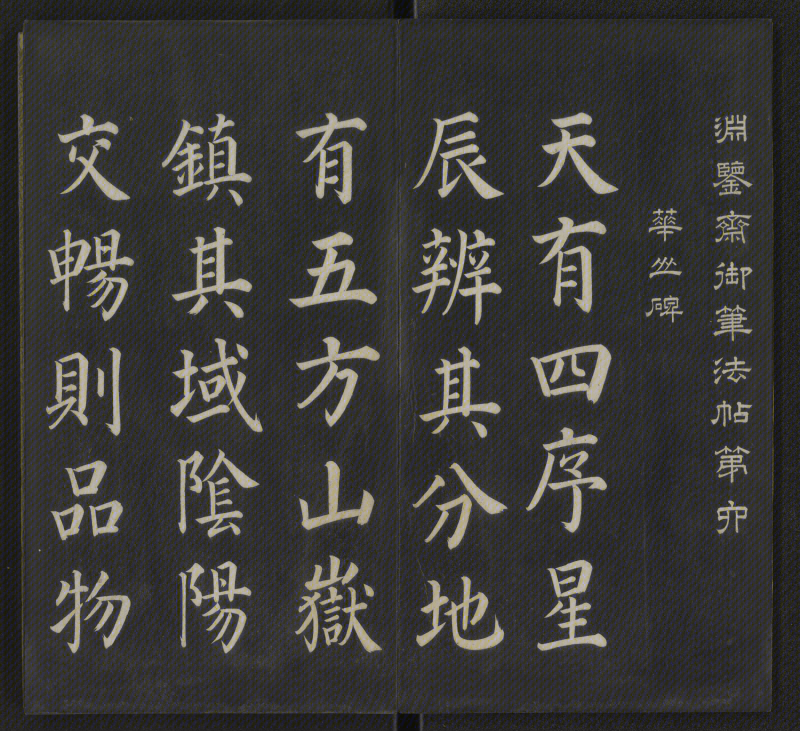 淵鑒齋御筆法帖第六
華山碑
天有四序星
辰辨其分地
有五方山嶽
鎮其域陰陽
交暢則品物